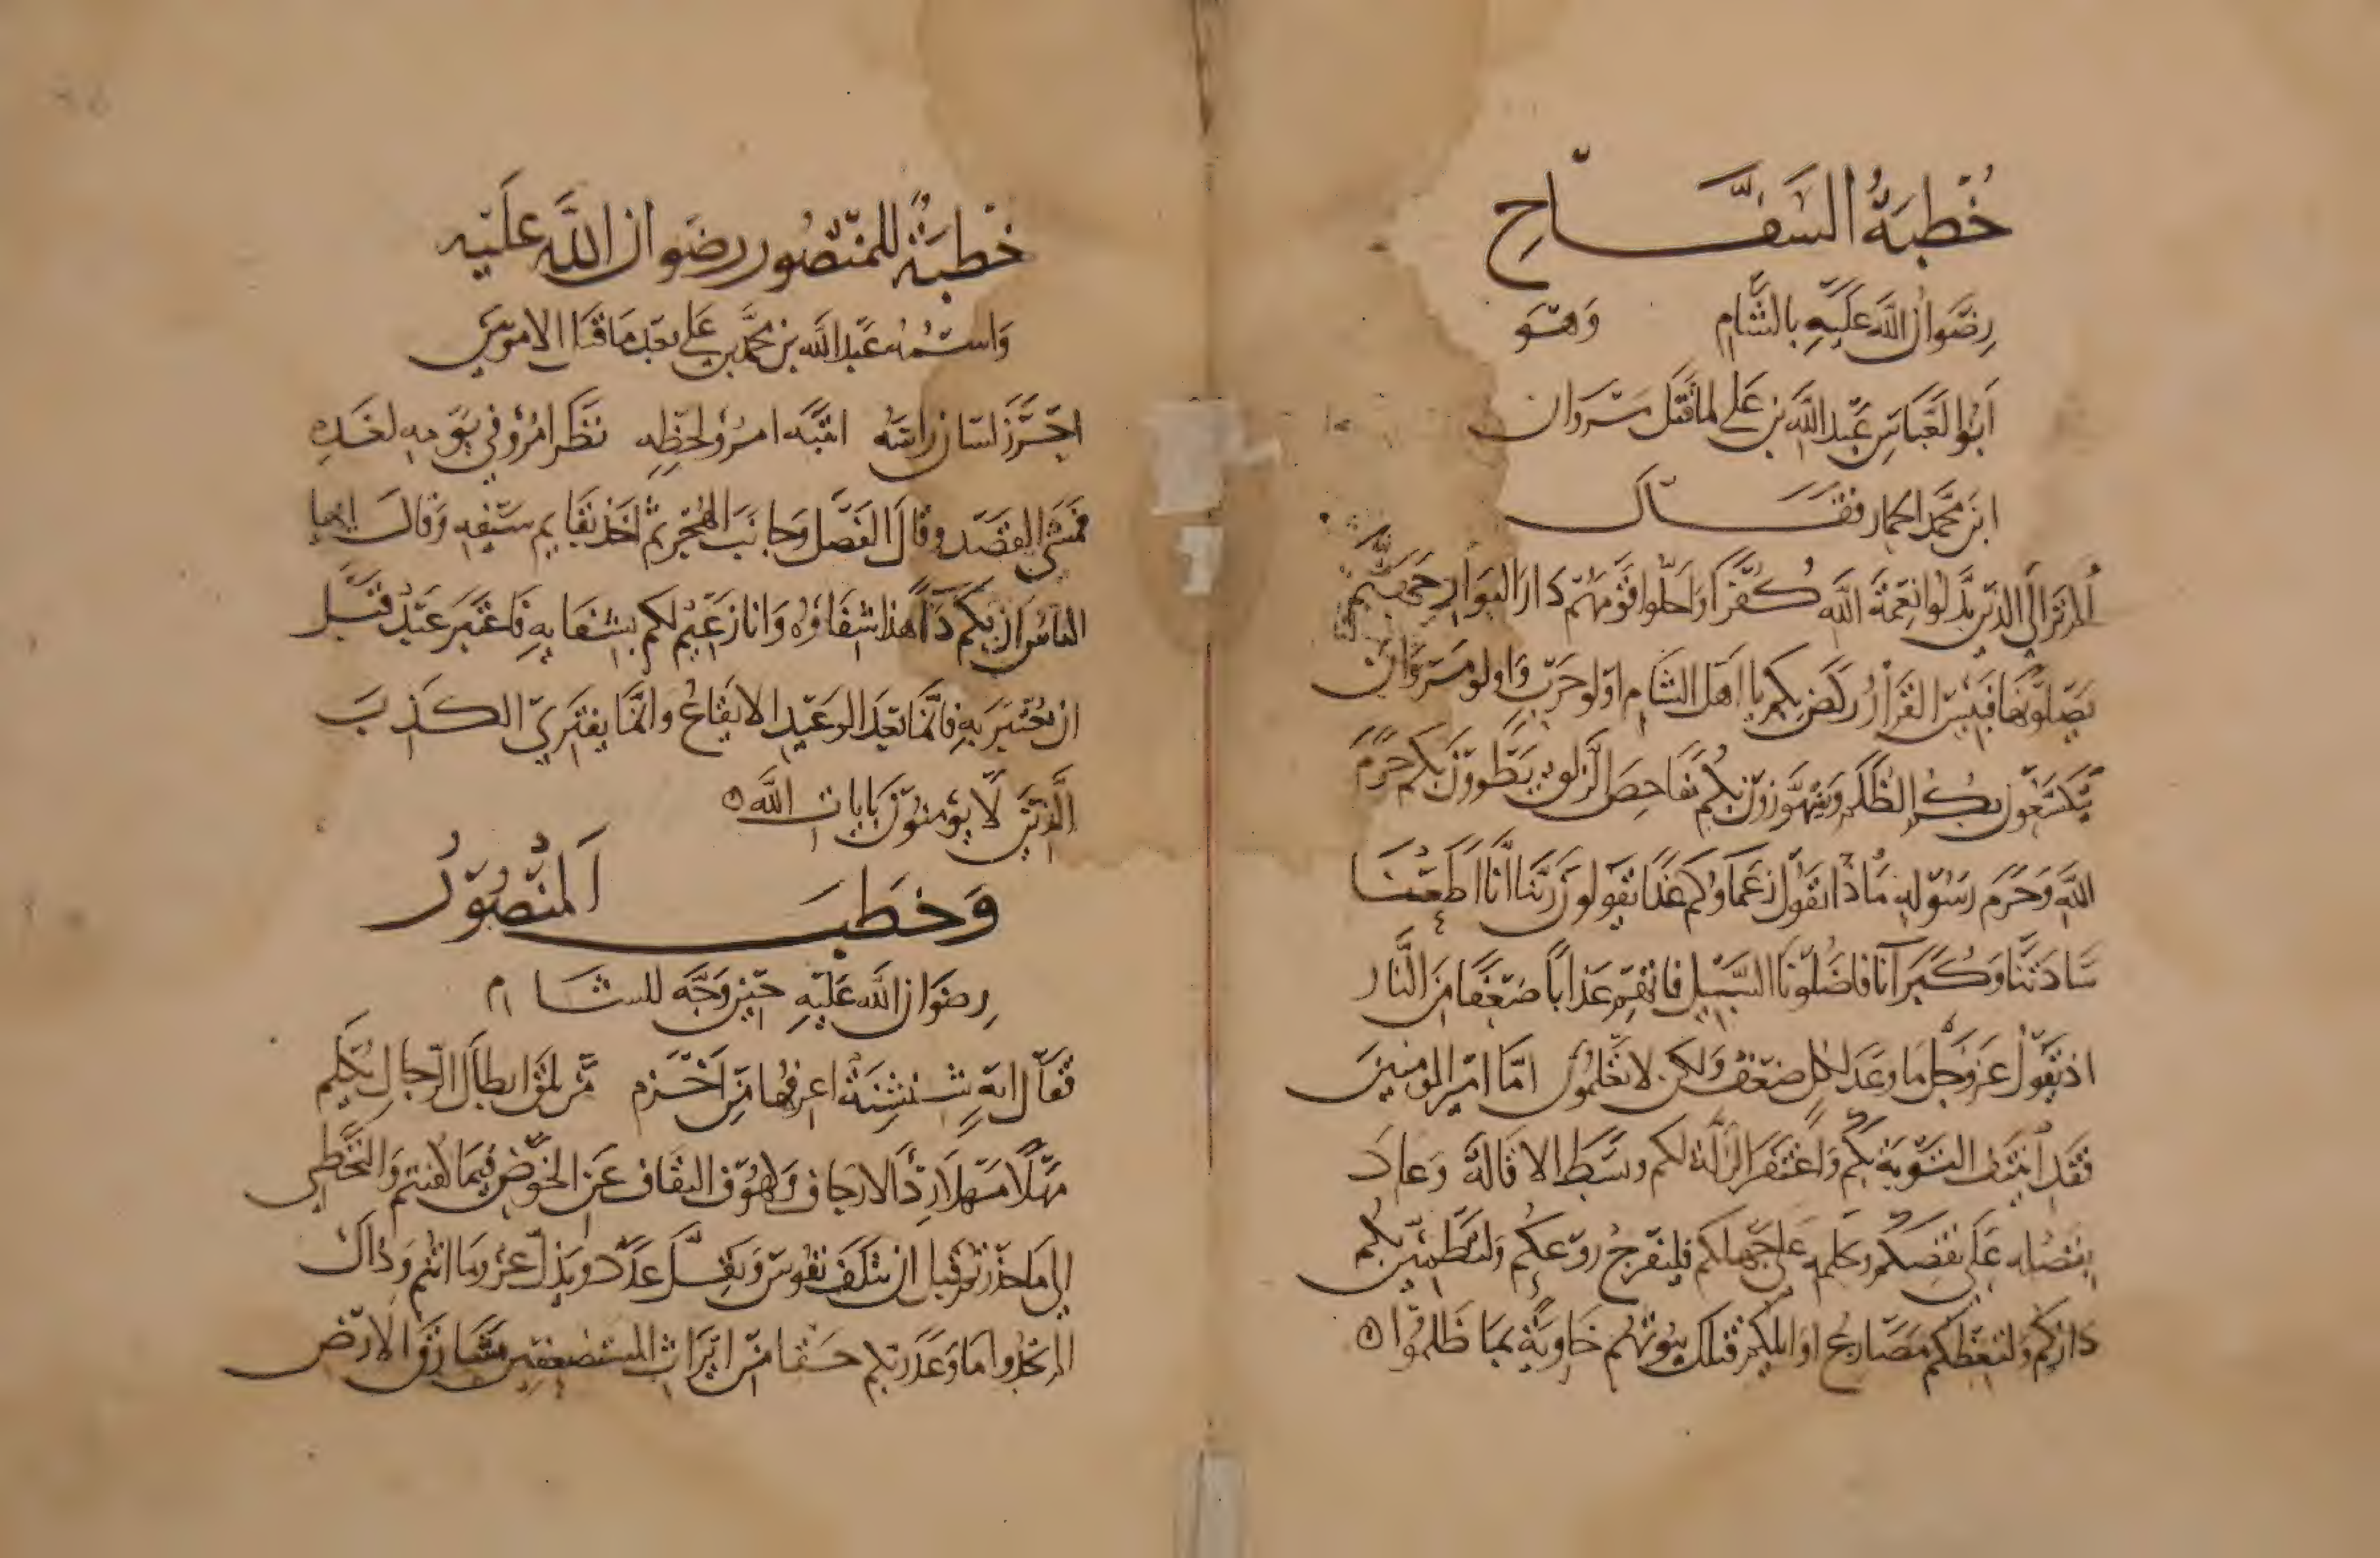 خُطبَةُ السَفَّاحِ
رِضوَانُ اللَّه عَلَيهِ بالشَّام وَهُوَ
أبُوا لعَبَاسِ عَبد اللَّه بن عَلي لما قتَل مَروان
ابن محمَّد الحمار فقَال
ألم تَرَ إلَى الذين بَدَّلوا نِعمَةَ اللَّه كُفرًا وَاحَلّوا قَومَهُم دَارَ البَوَارِ جَهَنَّم
يَصلَونهَا فَبِيسَ القَرَارُ ركضَ بِكم يا اهَل الشَام اولو حَرب وَاولو مَروَان
يَتَكسَّعُون بكم الظُلَم وَيَتهَوَّرُونَ بكُم مَداحِضَ الزَلق يَطوونَ بكم حَرَمَ
اللَّه وَحَرَم رَسُولِهِ مَاذا يقوُل زعَماوكم غَدًا يقولونَ رَبَّنا انَّا اَطَعنَا
سَادَتنَا وَكُبَرَآنا فاضَلونَا السَّبيل فاتهِم عَذابًا ضعفًا مِنَ النَّار
اذ يَقوُل عَز وجَل مَا وعَدَ لكل ضعف وَلكن لا تعلمُون امّا امير المومنينَ
فقَد ايتنَف التَوبة بكُم وَاغتفَر الزَلّة لكم وبسَط الاقالة وَعادَ
بفَضله عَلَى نقصِكم وحلمه على جَهلكم فليفرح روعكُم ولتَطمئِن بكُم
داركم وَلتعظكم مَصَارع اوايلكم فتلك بيُوتهُم خَاوِيَة بمَا ظَلمُوا
خُطبَةٌ للمنصُور رضوان اللَّه عَلَيه
وَاسمُه عَبد اللَّه بن محمَّد بن عَلي بعد مَا قتل الامويين
احرَزَ لسَان رَاسَه انتبَه امرُو لحظِه نظَر امرُوٌ في يَومِه لغَدِه
فمشَى القصد وقالَ الفَصل وَجانَبَ الهُجر ثم اخذ بقايم سَيفِه وَقالَ ايها
الناسُ ان بكم دَاءً هذا شفَاوُه وَانا زعَيم لكم بشفَايهِ فَاعتبَر عَبدٌ قَبل
ان يُعتبَر بهِ فانما بعَد الوَعيد الايقاعُ وانما يَفتَرِي الكذبَ
الَّذينَ لا يؤمنُونَ بايات اللَّه
وَخطبَ اَلمنصُورُ
رِضوَان اللَّه عَلَيهِ حين وَجَّه للشام
فقَال ايه شنشِنَة اعرفها مِن اَخزم مَن يَلق ابطال الرّجال يُكلم
مَهلًا مَهلًا الارجاف وكهُوف النفاق عَن الخَوض فيمَا كفيتم وَالتَّخَطي
الي مَا حذرتم قبل ان تتلَف نفُوس وَيقلَّ عَدَد ويَذلّ عز وما انتُم وَذَاكَ
الم تجدُوا مَا وعَدَ ربكم حَقا من ايرَاث المستضعفين مشَارقَ الارض